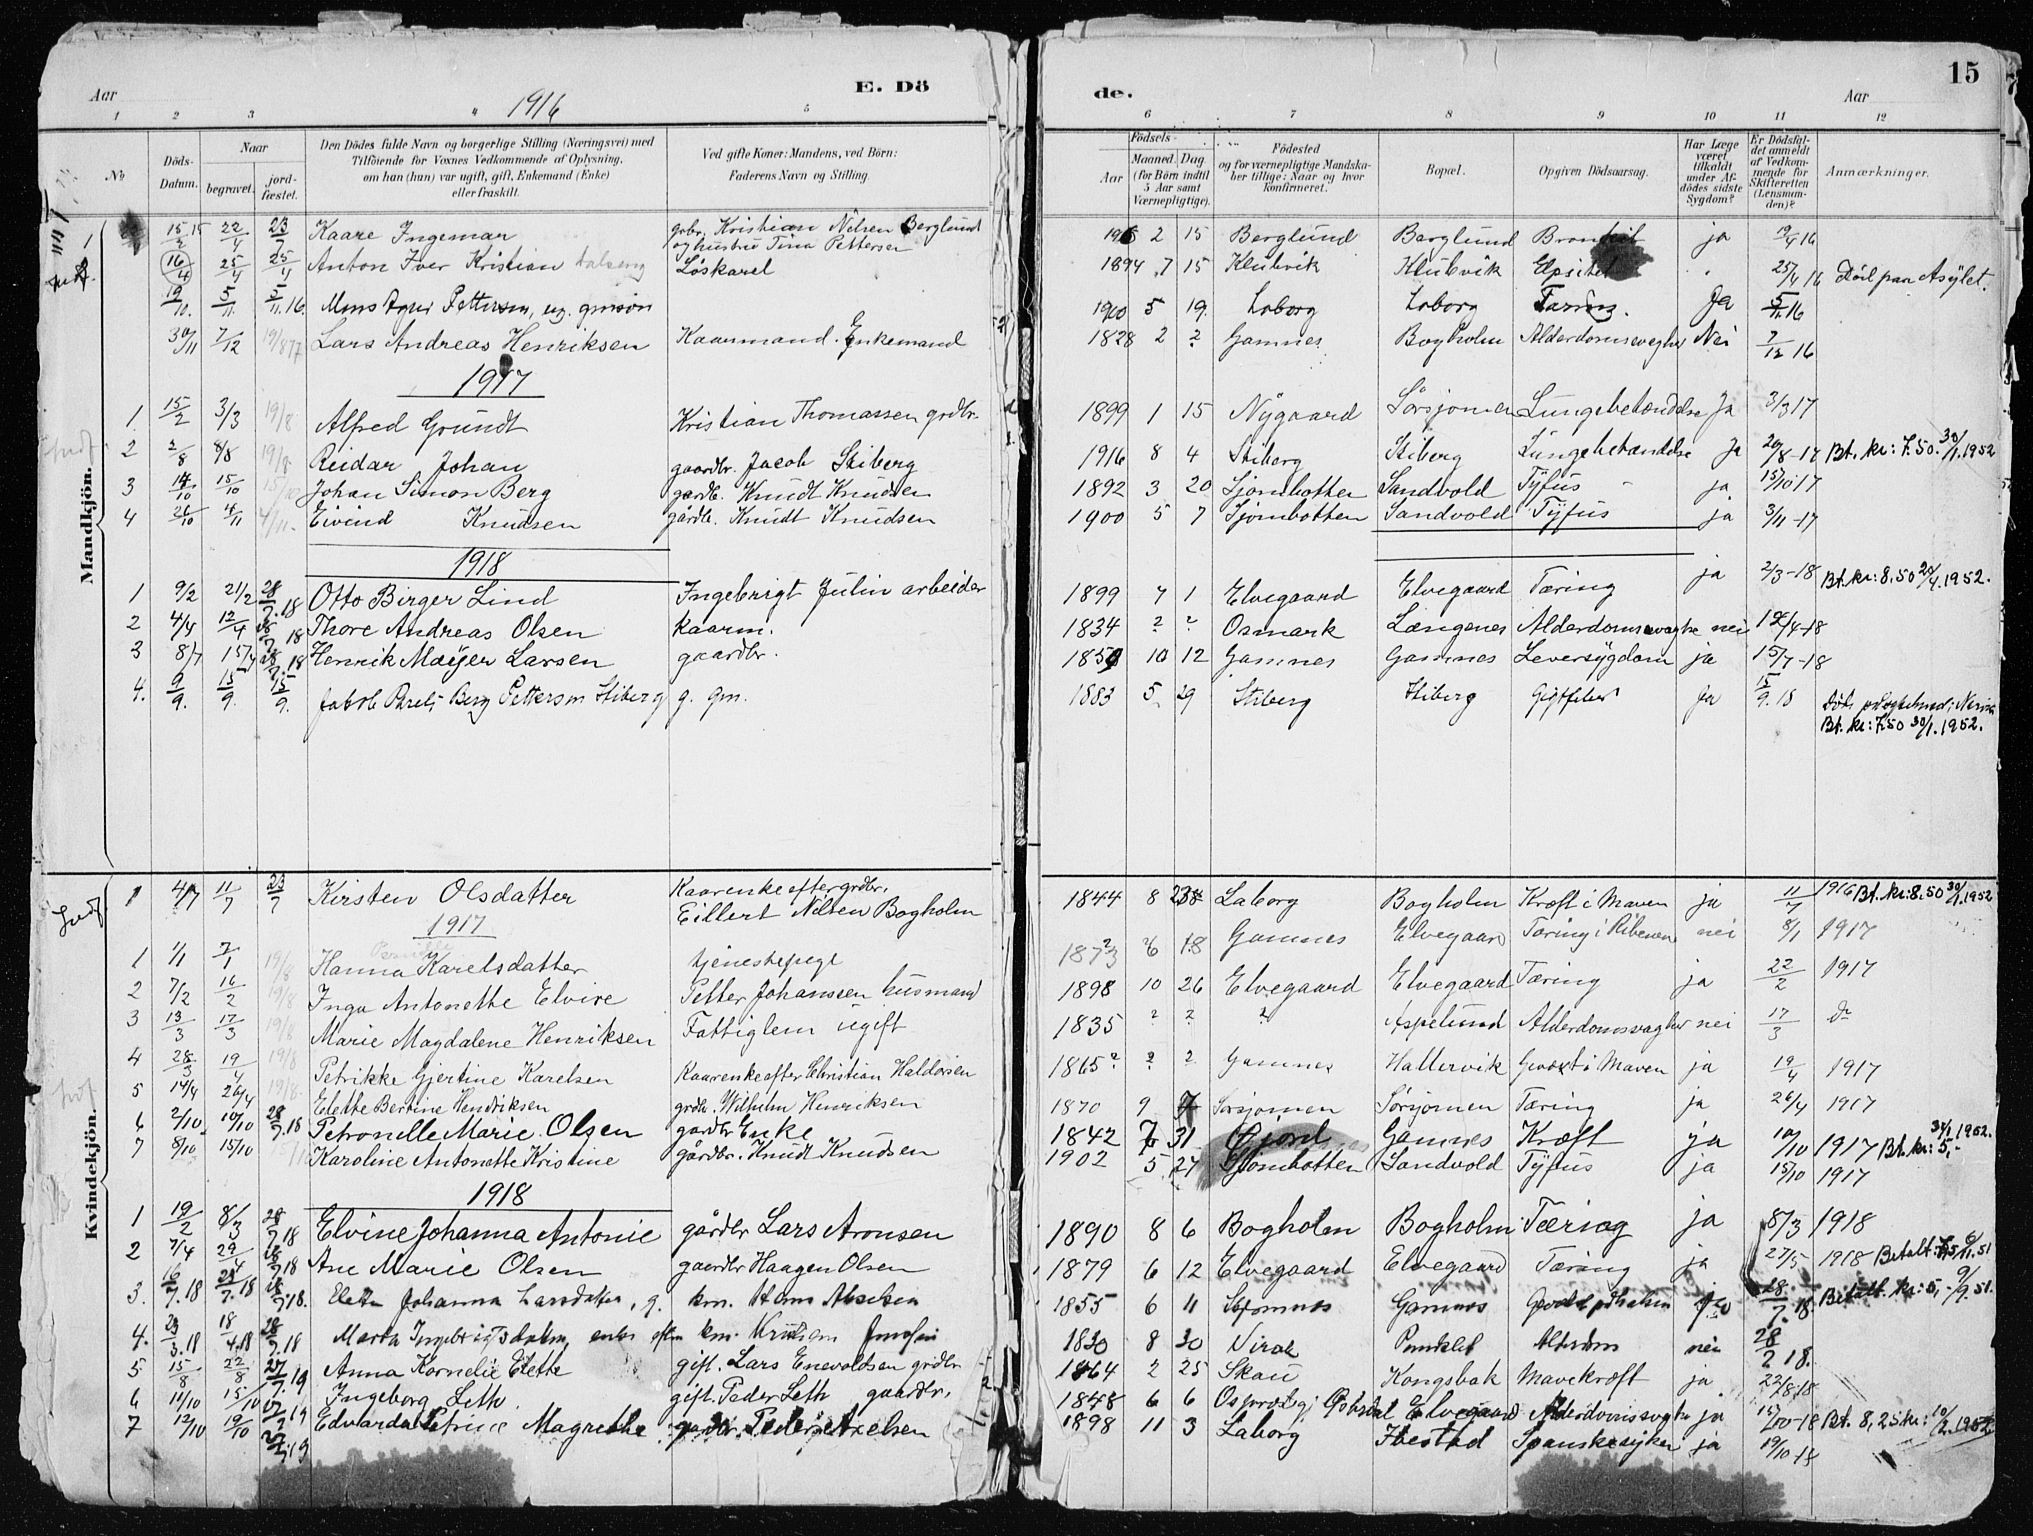 Aar 1916 E. Dö de. Aar 15
1 2 3 4 5 6 7 8 9 10 11 12
No Döds-Datum. Naar begravet. jord-fæstet. Den Dödes fulde Navn og borgerlige Stilling (Næringsvei) med Tilföiende for Voxnes Vedkommende af Oplysning, om han (hun) var ugift, gift, Enkemand (Enke) eller fraskilt. Ved gifte Koner: Mandens, ved Börn: Faderens Navn og Stilling. Födsels- Aar Maaned Dag (for Börn indtil 5 Aar samt Værnepligtige). Födested og for værnepligtige Mandskaber tillige: Naar og hvor konfirmeret. Bopæl. Opgiven Dödsaarsag. Har Læge været tilkaldt under Afdödes sidste Sygdom? Er Dödsfaldet anmeldt af Vedkommende for Skifteretten (Lensmanden)? Anmærkninger.
Mandkjön.
1 15/2 22/4 23/7 Kaare Ingemar gbr. Kristian Nilsen Berglund og hustru Tina Pettersen 2 15 Berglund Berglund ja 19/4 16
16/4 25/4 25/4 Anton Iver Kristian Løskarel 1894 7 15 Klubvik Klubvik 25/4 16 Död paa Asylet.
19/10. 5/11. 5/11.16. Pettersen, ug. gmsøn 1900 5 19. Laborg Laborg Tæring. Ja 5/11.16
30/11 7/12 19/8 17 Lars Andreas Henriksen Kaarmand. Enkemand 1828 2 ? Gamnes Bogholm Alderdomssvaghet Nei 7/12 16
1917
1 15/2 3/3 19/8 Alfred Grundt Kristian Thomassen grdbr. 1899 1 15 Nygaard Sørsjomen Lungebetændelse Ja 3/3 17
2 2/8 8/8 19/8 Reidar Johan gaardbr. Jacob Stiberg 1916 8 4 Stiberg Stiberg Lungebetændelse Ja 20/8-17 Bt. kr: 7.50. 30/1.1952
3 14/10 15/10 15/10 Johan Simon Berg gårdb. Knudt Knudsen 1892 3 20 Sjømbotten Sandvold Tyfus - ja 15/10 17
4 26/10 4/11 4/11. Eivind Knudsen gårdb. Knudt Knudsen 1900 5 7 Sjømbotten Sandvold Tyfus ja 3/11-17
1918
1 9/2 21/2 28/7.18 Otto Birger Lind Ingebrigt Julin arbeider 1899 7 1 Elvegaard Elvegaard Tæring ja 2/3-18 Bt. kr: 8.50 20/4.1952.
2 4/4 12/4 28/7 18 Thore Andreas Olsen kaarm. 1834 ? ? Osmark Længenes Alderdomssvaghe nei 12/4-18
3 8/7 15/7 28/7.18 Henrik Mæyer Larsen gaardbr. 10 12 Gamnes Gamnes Leversygdom ja 15/7-18
4. 9/9. 15/9. 15/9. Jakob Pareli Berg Pettersen Stiberg g. gm. 1883 5 29 Stiberg Stiberg Gigtfeber Ja 15/9.18
Bt. kr: 7.50 30/1.1952.
Kvindekjön.
1 4/7 11/7 23/7 Kirsten Olsdatter Kaarenke efter grdbr. Eillert Nilsen Bogholm 1844 8 Laborg Bogholm Kræft i Maven ja 11/7 1916 Bt. kr: 8.50 30/1.1952
1917
1 1/1 7/1 19/8 Hanna Karelsdatter tjenestepige 1873 ? 18 Gamnes Elvegaard Tæring i Ribenen nei 8/1 1917
2 7/2 16/2 19/8 Inga Antonette Elvire Petter Johansen husmand 1898 10 26 Elvegaard Elvegaard Tæring ja 22/2 1917
3 13/3 17/3 19/8 Marie Magdalene Henriksen Fattiglem ugift 1835 ? ? ? Aspelund Alderdomsvaghet nei 17/3 do
4 28/3 19/4 19/8 Petrikke Gjertine Karelsen Kaarenke efter Christian Haldorsen 1865? ? ? Gamnes Hallervik Grøxt i Maven ja 19/4 1917
5 14/4 26/4 19/8. Elette Bertine Hendriksen grdbr. Wilhelm Henriksen 1870 9 7 Sørsjomen Sørsjomen Tæring ja 26/4 1917
6 2/10 10/10 28/7.18 Petronelle Marie Olsen gårdbr. Enke 1842 7 31 Gamnes Kræft ja 10/10 1917 Bt. kr: 5,- 1952.
7 8/10 15/10 Karoline Antonette Kristine gårdbr. Knudt Knudsen 1902 5 27 Sjømbotten Sandvold Tyfus ja 15/10 1917
1918
1 19/2 8/3 28/7 18 Elvine Johanna Antonie gårdbr Lars Aronsen 1890 8 6 Bogholm Bogholm Tæring ja 8/3 1918
2 7/4 29/4 28/7 18 Ane Marie Olsen gaardbr Haagen Olsen 1879 6 12 Elvegaard Elvegaard Tæring ja 27/5 1918 Betalt
3. 16/7.18 28/7.18 28/7.18. Johanna Larsdatter, g. km. Hans Akselsen 1855 6 11 Gamnes 28/7.18 Betalt kr: 5,-
4. 23/3.18 18/4.18 28/7.18 Marta Ingebrigtsdatter, enke efter km. 1830 8 30 Alderdom nei 28/7 18.
5 15/8 22/8 27/7.19 Anna Kornelie Elette gift. Lars Enevoldsen grdbr 1864 2 25 Skau Kongsbak Mavekræft ja 22/8.18
6 11/10 15/10 27/7 19 Ingeborg Leth. gift. Peder Leth gaardbr, 1848 6 6 Elvegaard Alderdomssvaghe ja 15/10-18 Bt. 8,25 kr: 1952
7 12/10 19/10 27/7.19 Edvarda Petrine Magrethe gaardbr. Peder Axelsen 1898 11 3 Laborg Ibestad Spanskesyken ja 19/10 18